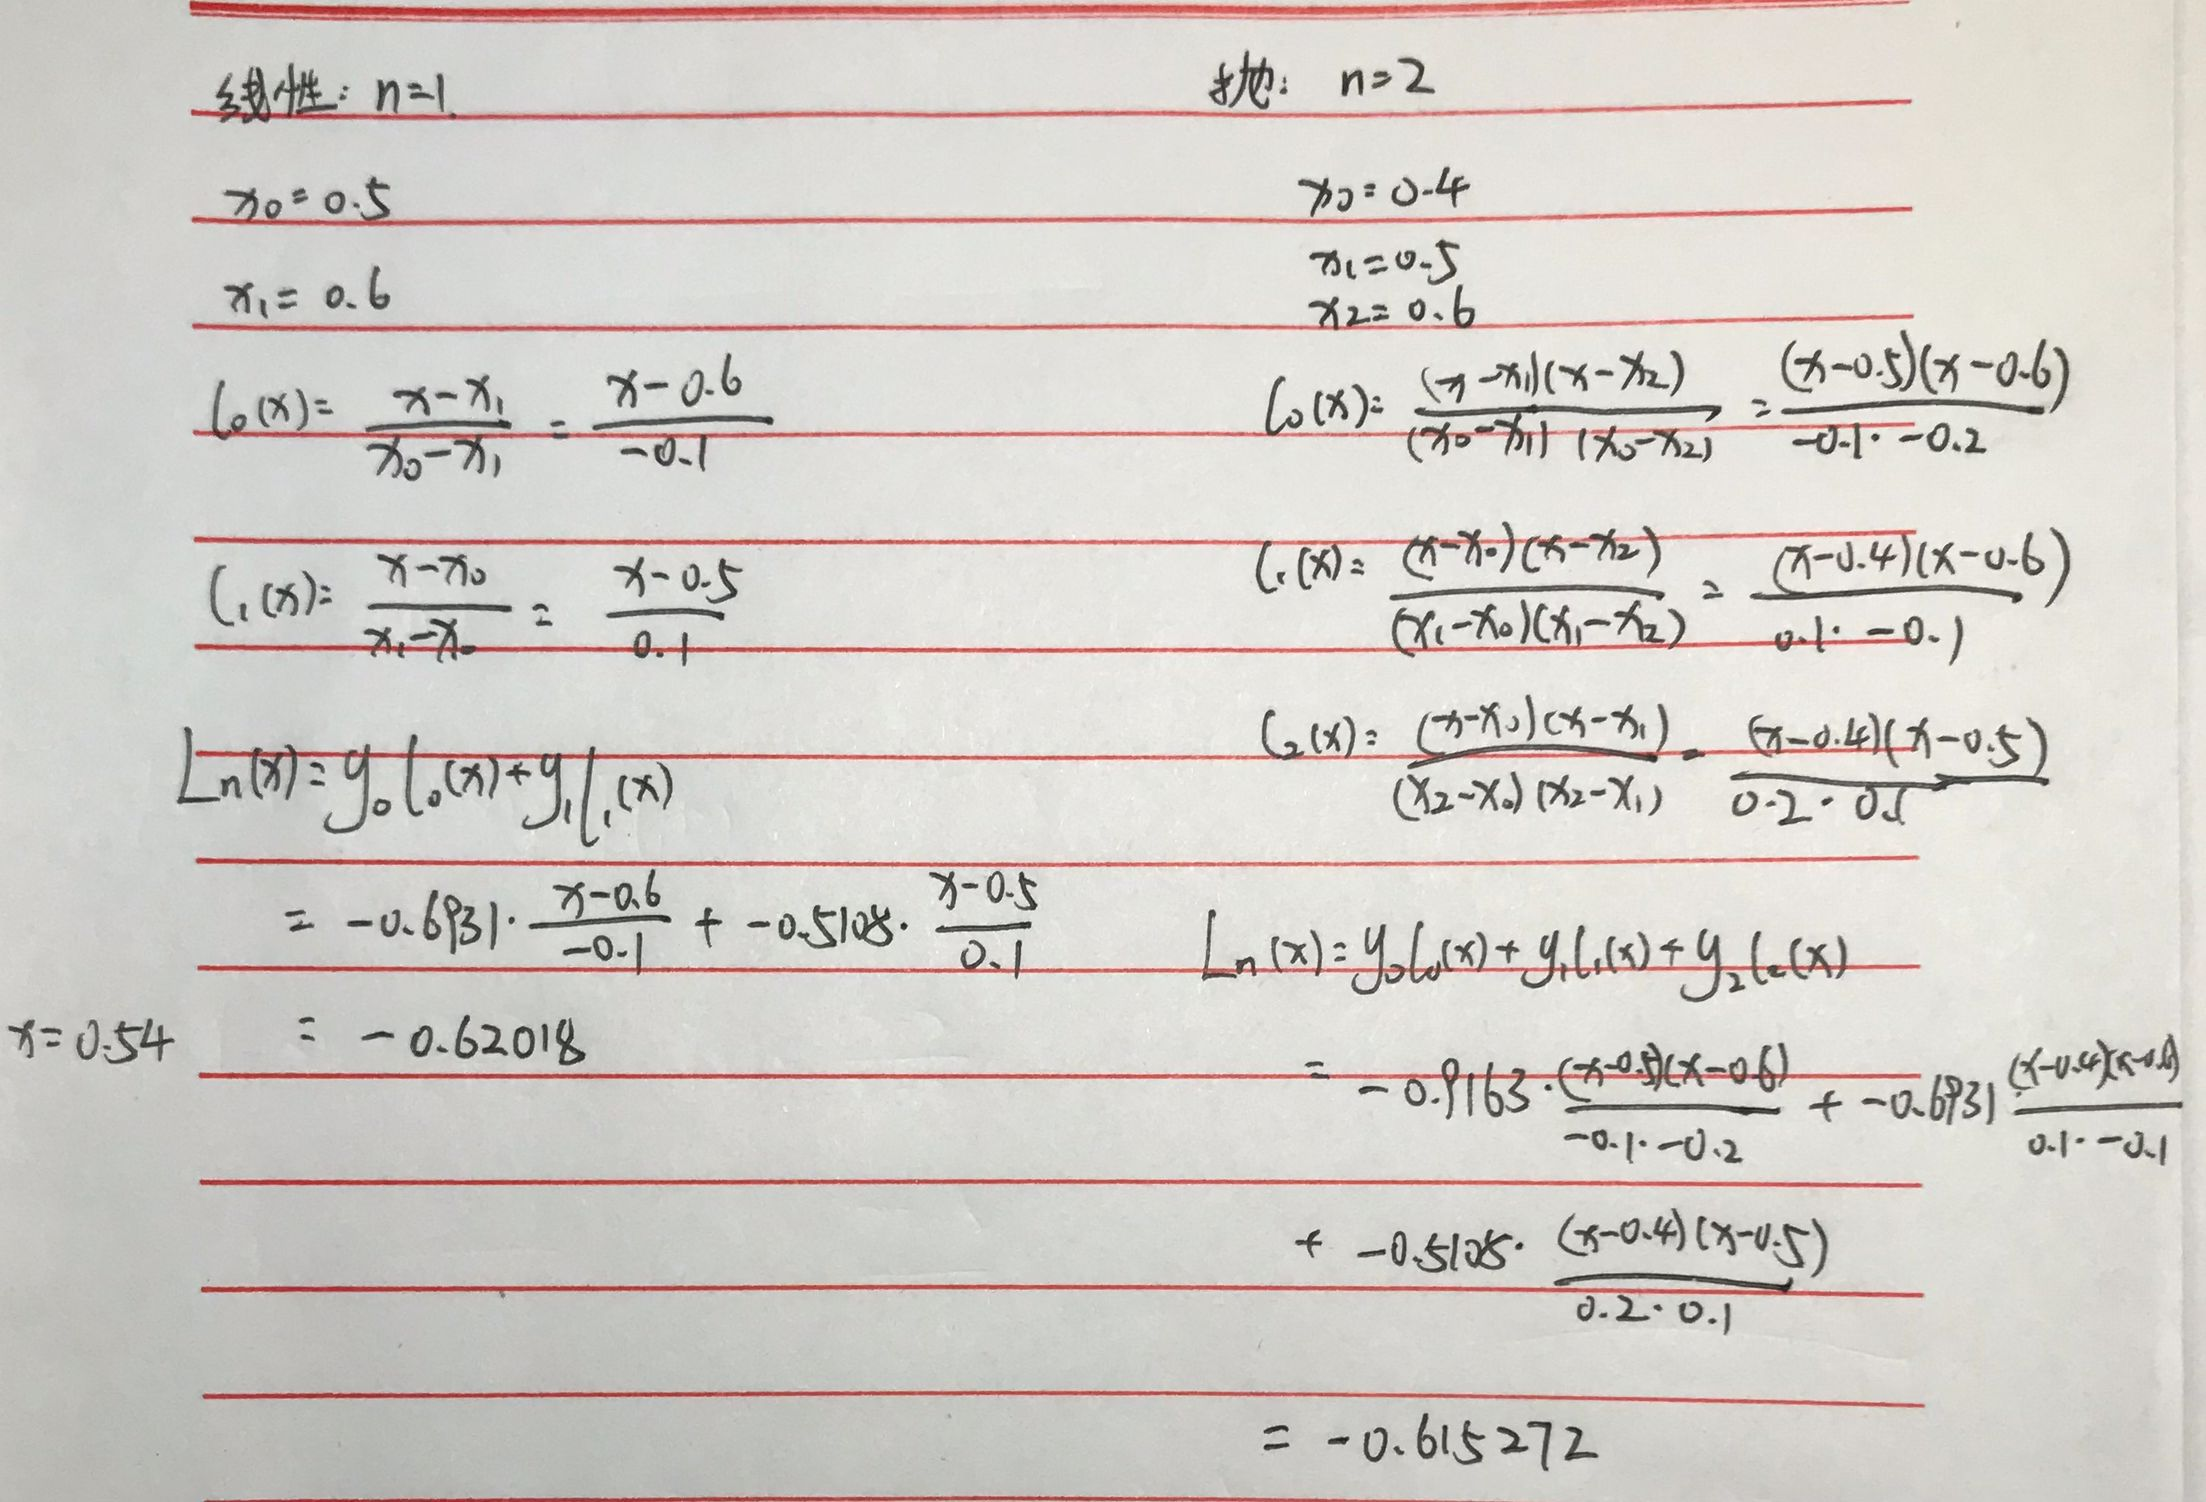 线性: n=1.
x0=0.5
x1=0.6
l0(x)= (x-x1)/(x0-x1) = (x-0.6)/(-0.1)
l1(x)= (x-x0)/(x1-x0) = (x-0.5)/(0.1)
Ln(x)=y0l0(x)+y1l1(x)
= -0.6931·(x-0.6)/(-0.1) + -0.5108·(x-0.5)/(0.1)
x=0.54 = -0.62018
抛: n=2
x0=0.4
x1=0.5
x2=0.6
l0(x)= (x-x1)(x-x2)/(x0-x1)(x0-x2) = (x-0.5)(x-0.6)/-0.1·-0.2
l1(x)= (x-x0)(x-x2)/(x1-x0)(x1-x2) = (x-0.4)(x-0.6)/0.1·-0.1
l2(x)= (x-x0)(x-x1)/(x2-x0)(x2-x1) = (x-0.4)(x-0.5)/0.2·0.1
Ln(x)=y0l0(x)+y1l1(x)+y2l2(x)
= -0.9163·(x-0.5)(x-0.6)/-0.1·-0.2 + -0.6931 (x-0.4)(x-0.6)/0.1·-0.1
+ -0.5108·(x-0.4)(x-0.5)/0.2·0.1
= -0.615272